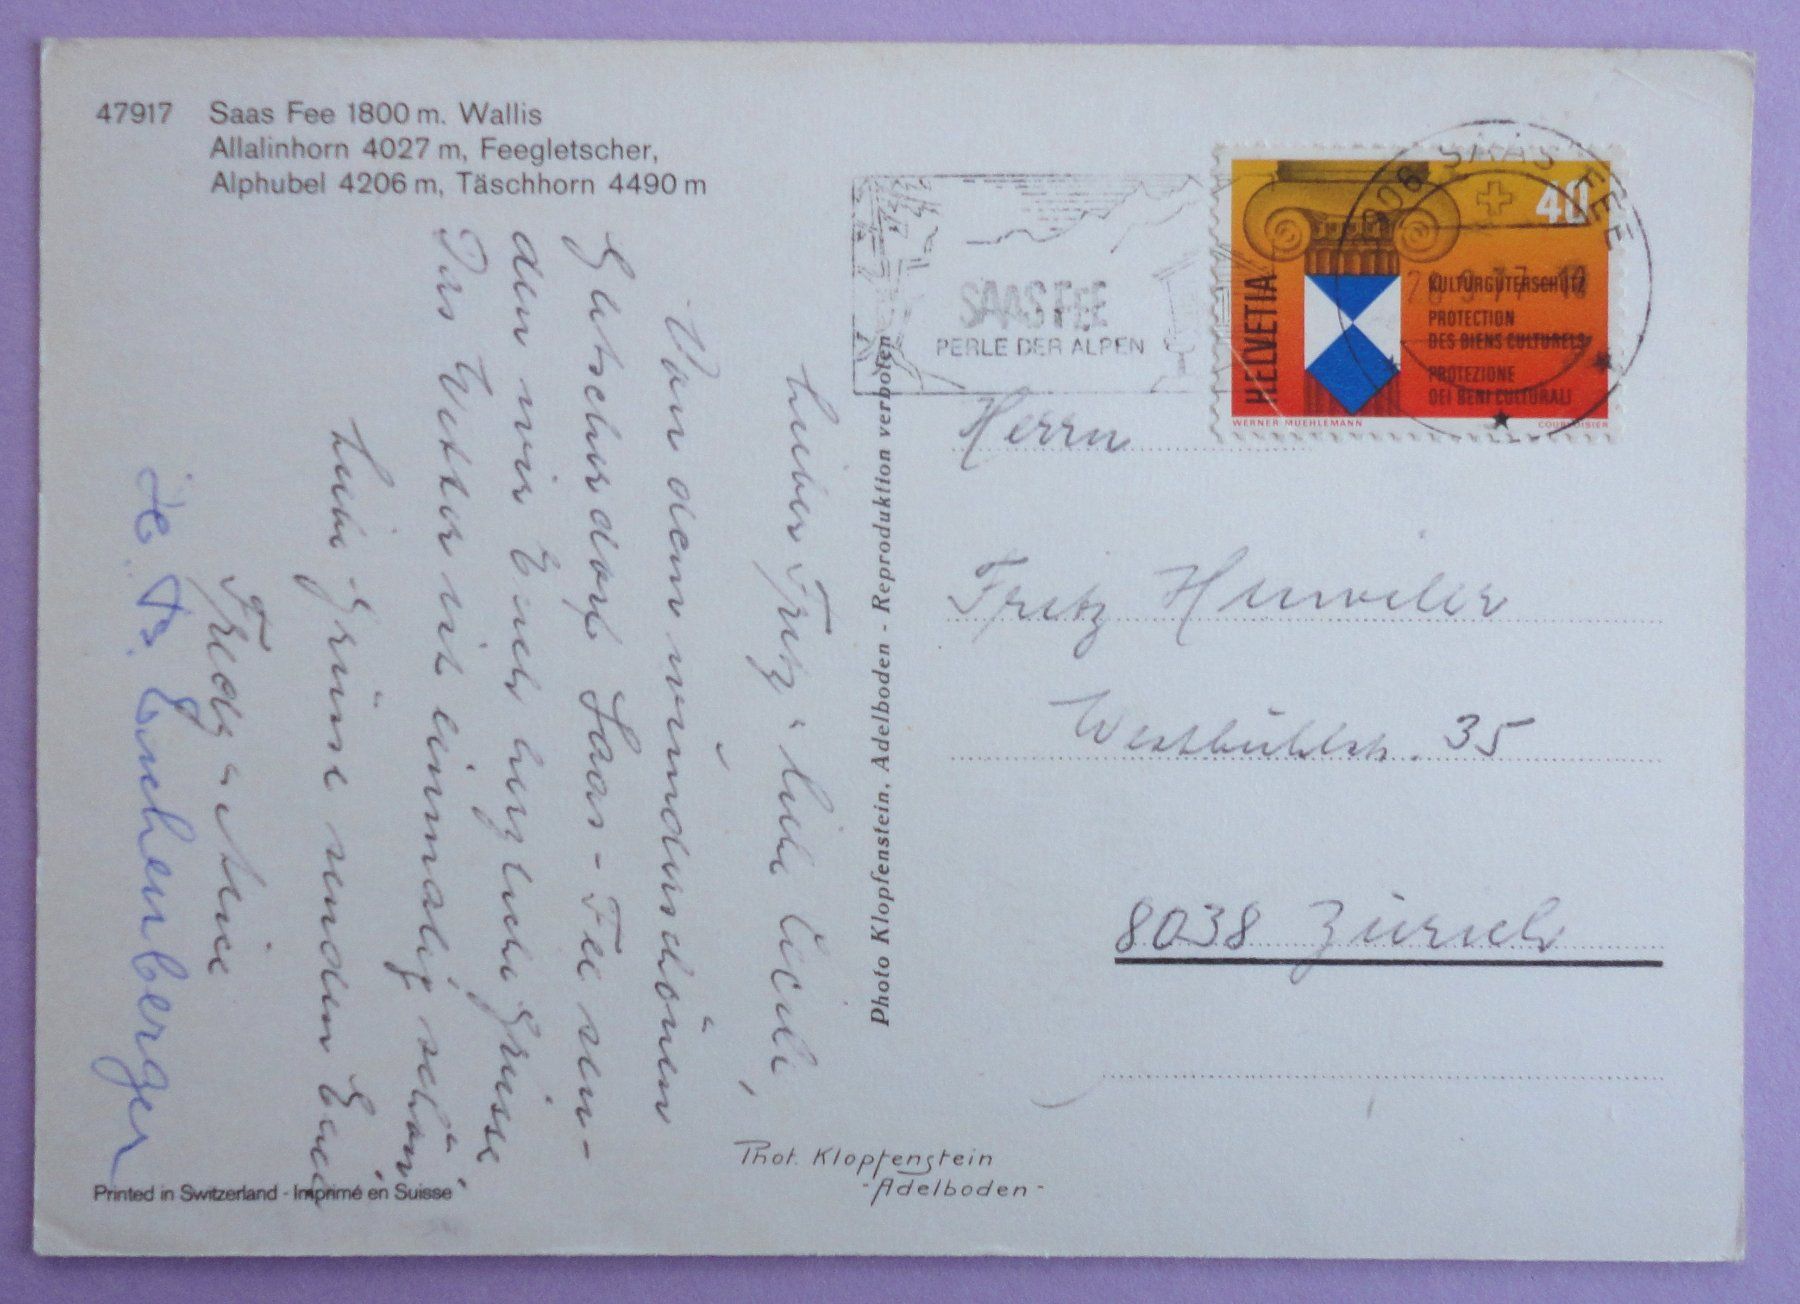 47917 Saas Fee 1800 m. Wallis
Allalinhorn 4027 m, Feegletscher,
Alphubel 4206 m, Täschhorn 4490 m
SAAS FEE
PERLE DER ALPEN
3906 SAAS FEE
28.9.77-18
HELVETIA
40
KULTURGÜTERSCHUTZ
PROTECTION
DES BIENS CULTURELS
PROTEZIONE
DEI BENI CULTURALI
WERNER MUEHLEMANN
COURVOISIER
Lieber Fritz, liebe Cécile,
Von dem wunderschönen
Gletscherdorf Saas-Fee sen-
den wir Euch herzliche Grüsse
Das Wetter ist einmalig schön
Liebe Grüsse senden Euch
Fredy u.
Enchenberger
Photo Klopfenstein, Adelboden - Reproduktion verboten
Herrn
Fritz
Westbühlstr. 35
8038 Zürich
Phot. Klopfenstein
- Adelboden -
Printed in Switzerland - Imprimé en Suisse